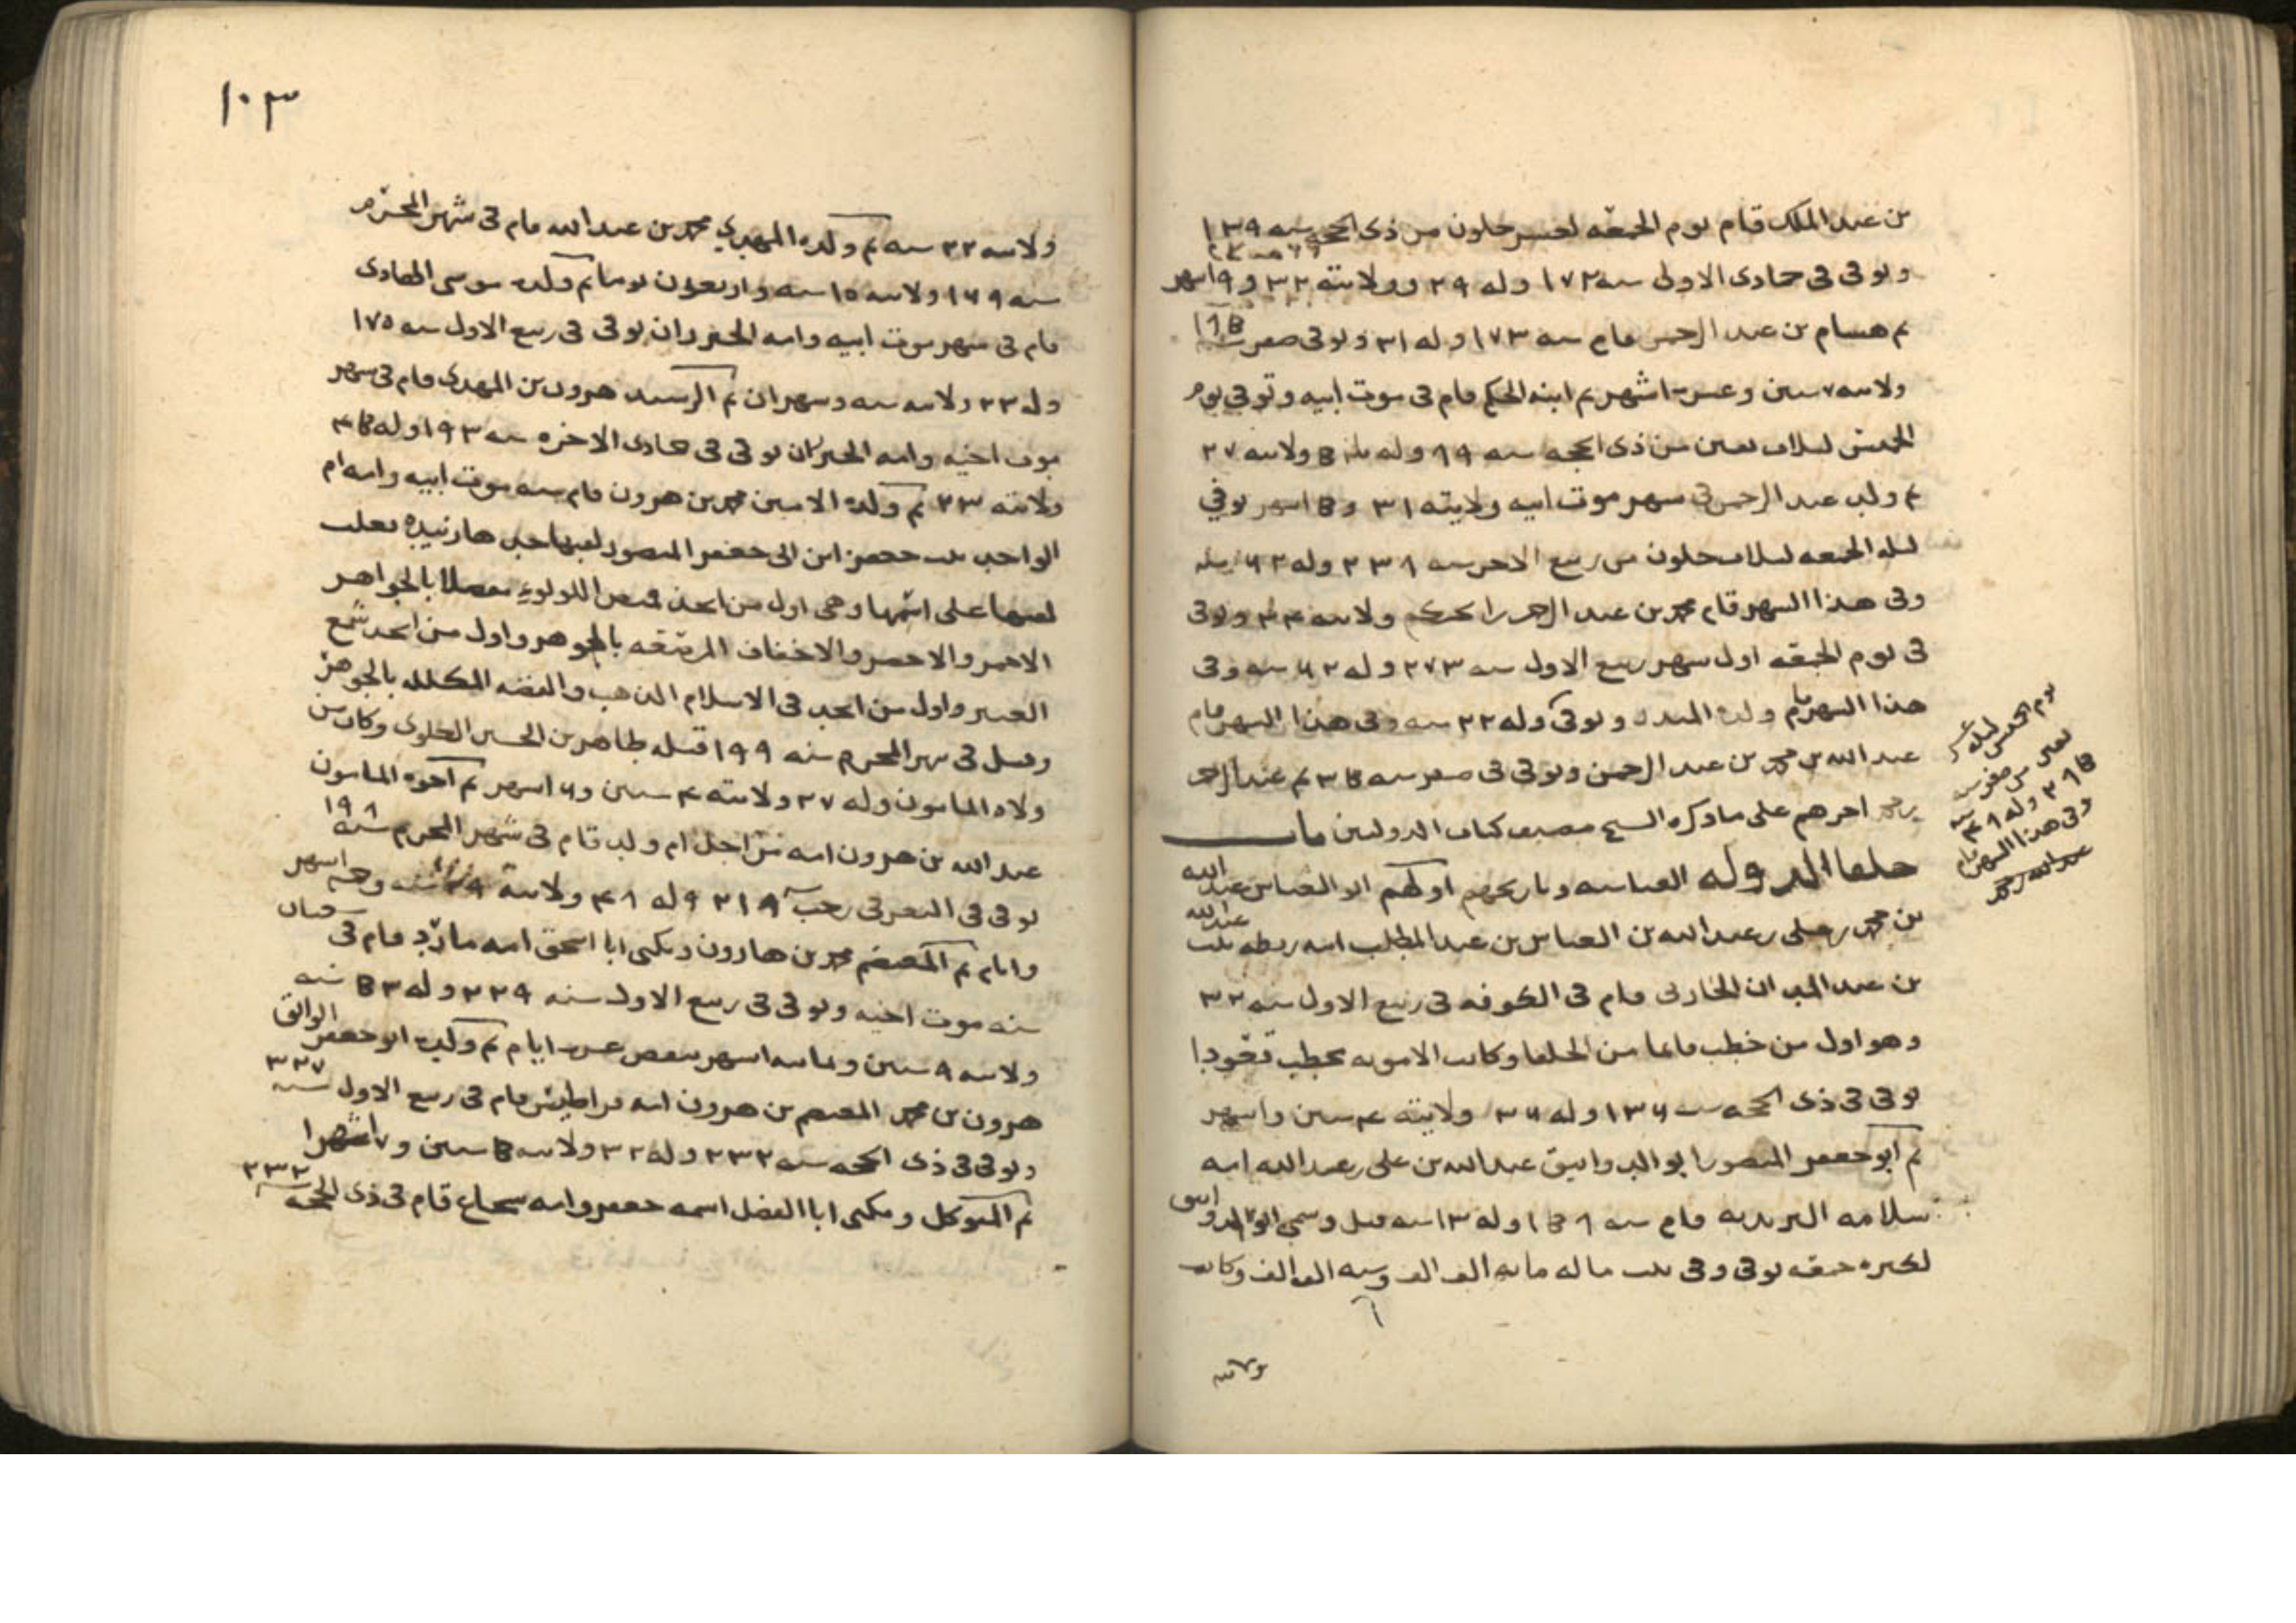 بن عبد الملك قام يوم الجمعه لعشر خلون من ذى الحجه سنه ١٣٩
وتوفى فى جمادى الاولى سنه ١٧٢ وله ٢٩ وولايته ٣٢ و٩ اسهر
تم هسام بن عبد الرحمن قام سنه ١٧٣ وله ٣١ وتوفى صفر
ولايته ٧ سنين وعشر اشهر تم ابنه الحكم قام فى موت ابيه وتوفى يوم
الخميس لثلاث بقين من ذى الحجه سنه وله ولايته ٢٧
تم ولده عبد الرحمن فى سهر موت ابيه ولايته ٣١ و8 اسهر توفي
ليله الجمعه لثلاث خلون من ربيع الاخر سنه ٢٣٨ وله ٦٢ سنه
وفى هذا السهر قام محمد بن عبد الرحمن بن الحكم ولايته ٣٤ وتوفى
فى يوم الجمعه اول سهر ربيع الاول سنه ٢٧٣ وله ٦٢ سنه وفى
هذا السهر قام ولده المنذر وتوفى وله ٢٢ سنه وفى هذا السهر قام
عبد الله بن محمد بن عبد الرحمن وتوفى فى صفر سنه تم عبد الرحمن
اخرهم على ما ذكره السيخ مصنف كتاب الدولتين
يوم الخميس لليله
بقين من صفر سنه
وله
وفى هذا السهر قام
عبد الله بن محمد
خلفا الدوله العباسيه وتاريخهم اولهم ابو العباس عبد الله
بن محمد بن على بن عبد الله بن العباس بن عبد المطلب امه ريطه بنت عبد الله
بن عبد المدان الحارثى قام فى الكوفه فى ربيع الاول سنه ٣٢
وهو اول من خطب قايما من الخلفا وكانت الامويه تخطب قعودا
توفى فى ذى الحجه سنه ١٣٦ وله ٣٦ ولايته ٤ سنين واسهر
تم ابو جعفر المنصور ابو الدوانيق عبد الله بن على بن عبد الله امه
سلامه البربريه قام سنه وله سنه قيل وسمى ابو الدوانيق
لكثره جمعه توفى وفى بيت ماله مايه الف الف وسته الف الف وكانت

١٠٣
ولايته ٢٢ سنه تم ولده المهدي محمد بن عبد الله مام فى شهر المحرم
سنه ١٦٩ ولايته ١٥ سنه واربعون يوما تم ولده موسى الهادى
قام فى سهر موت ابيه وامه الخيزران توفى فى ربيع الاول سنه ١٧٥
وله ٢٣ ولايته سنه وسهران تم الرسيد هرون بن المهدى قام فى سهر
موت اخيه وامه الخيزران توفى فى جمادى الاخره سنه ١٩٣ وله
ولايته ٢٣ تم ولده الامين محمد بن هرون قام سنه موت ابيه وامه ام
الواحد بنت جعفر ابن ابى جعفر المنصور لقبها جدها زبيده فغلب
لقبها على اسمها وهى اول من اتخذ قميص اللولوء مفصلا بالجواهر
الاحمر والاخضر والاخفاف المرصعه بالجوهر واول من اتخد شمع
العنبر واول من اتخد فى الاسلام الذهب والفضه المكلله بالجوهر
وقتل فى سهر المحرم سنه ١٩٩ قتله طاهر بن الحسين العلوى وكان من
ولاه المامون وله ٢٧ ولايته ٤ سنين و٦ اسهر تم اخوه المامون
عبد الله بن هرون امه مراجل ام ولد قام فى شهر المحرم سنه ١٩٨
توفى فى الثغر فى رجب ٢١٨ وله ٤٨ ولايته سنه وخمسه اسهر
وايام تم المعتصم محمد بن هارون ويكنى ابا اسحق امه مارد قام فى سعبان
سنه موت اخيه وتوفى فى ربيع الاول سنه ٢٢٩ وله ٣8 سنه
ولايته ٩ سنين وثمانيه اسهر ينقص عسر ايام تم ولده ابو جعفر الواثق
هرون بن محمد المعتصم بن هرون امه قراطيس قام فى ربيع الاول سنه
وتوفى فى ذى الحجه سنه ٢٣٢ وله ٣٢ ولايته 8 سنين و٧ اشهرا
تم المتوكل ويكنى ابا الفضل اسمه جعفر وامه سجاع قام فى ذى الحجه ٢٣٢